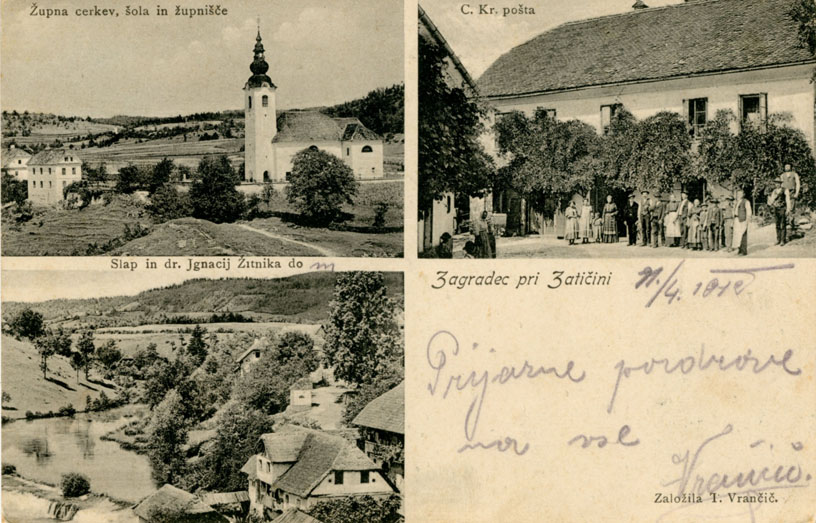 Župna cerkev, šola in župnišče
C. Kr. pošta
Slap in dr. Jgnacij Žitnika dom
Zagradec pri Zatičini
Prijazne pozdrave
na vse
Vrančič.
Založila T. Vrančič.